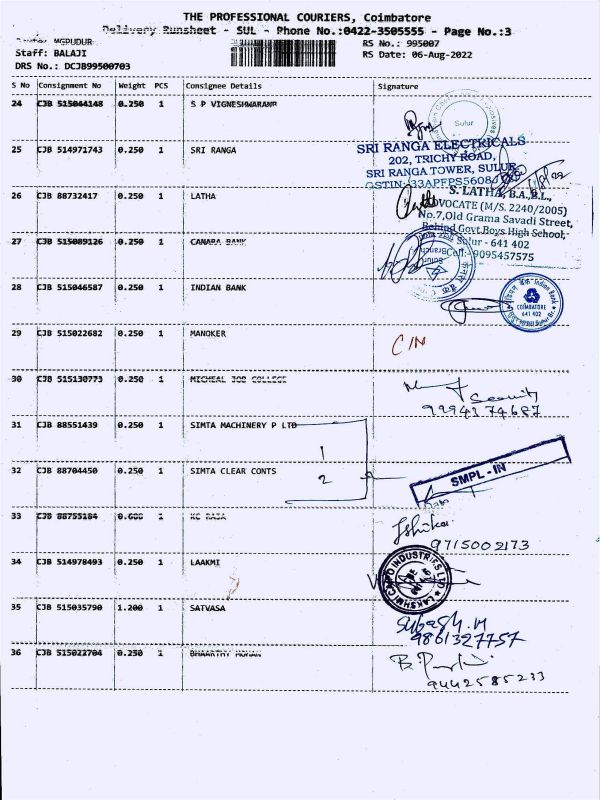 THE PROFESSIONAL COURIERS, Coimbatore
Delivery Runsheet - SUL - Phone No.:0422-3505555 - Page No.:3
MGPUDUR
RS No.: 995007
Staff: BALAJI
RS Date: 06-Aug-2022
DRS No.: DCJB99500703
S No Consignment No Weight PCS Consignee Details Signature
24 CJB 515044148 0.250 1 S P VIGNESHWARANR
Sulur
25 CJB 514971743 0.250 1 SRI RANGA
SRI RANGA ELECTRICALS
202, TRICHY ROAD,
SRI RANGA TOWER, SULUR
26 CJB 88732417 0.250 1 LATHA
S. LATHA, B.A.,B.L.,
ADVOCATE (M/S. 2240/2005)
No.7,Old Grama Savadi Street,
Behind Govt.Boys High School,
Sulur - 641 402
Cell:-9095457575
27 CJB 515089126 0.250 1 CANARA BANK
28 CJB 515046587 0.250 1 INDIAN BANK
Indian Bank
COIMBATORE
641 402
29 CJB 515022682 0.250 1 MANOKER
30 CJB 515130773 0.250 1 MICHEAL JOB COLLEGE
Security
9294374687
31 CJB 88551439 0.250 1 SIMTA MACHINERY P LTD
1
32 CJB 88704450 0.250 1 SIMTA CLEAR CONTS
2
SMPL - IN
33 CJB 88755184 0.600 1 KC RAJA
9715002173
34 CJB 514978493 0.250 1 LAAKMI
LAKSHMI CAIPO INDUSTRIES LTD
35 CJB 515035790 1.200 1 SATVASA
Subash.M
9861327757
36 CJB 515022704 0.250 1 BHAARTHY MOHAN
9442585233